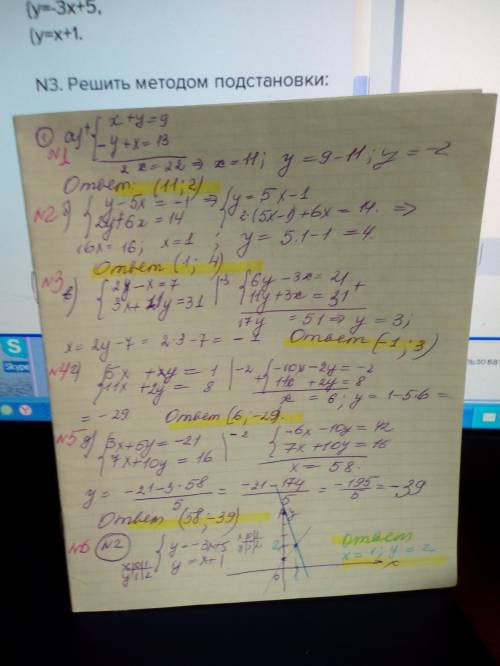 {y=-3x+5,
{y=x+1.
N3. Решить методом подстановки:
① а) + { x + y = 9
№1 { -y + x = 13
2x = 22 ⇒ x = 11; y = 9 - 11; y = -2
Ответ: (11; 2)
№2 б) { y - 5x = -1 ⇒ { y = 5x - 1
{ 2y + 6x = 14 { 2·(5x-1) + 6x = 14. ⇒
16x = 16; x = 1; y = 5·1 - 1 = 4.
Ответ (1; 4)
№3 в) { 2y - x = 7 |·3 { 6y - 3x = 21 +
{ 3x + 11y = 31 { 11y + 3x = 31
17y = 51 ⇒ y = 3;
x = 2y - 7 = 2·3 - 7 = -1 Ответ (-1; 3)
№4 г) { 5x + y = 1 | -2 { -10x - 2y = -2
{ 11x + 2y = 8 { 11x + 2y = 8
x = 6; y = 1 - 5·6 =
= -29 Ответ (6; -29).
№5 д) { 3x + 5y = -21 | -2 { -6x - 10y = 42
{ 7x + 10y = 16 { 7x + 10y = 16
x = 58.
y = (-21 - 3·58)/5 = (-21 - 174)/5 = -195/5 = -39
Ответ (58; -39)
№6 (N2) { y = -3x + 5
{ y = x + 1
y
2
0
1
x
Ответ
x = 1; y = 2
Skype